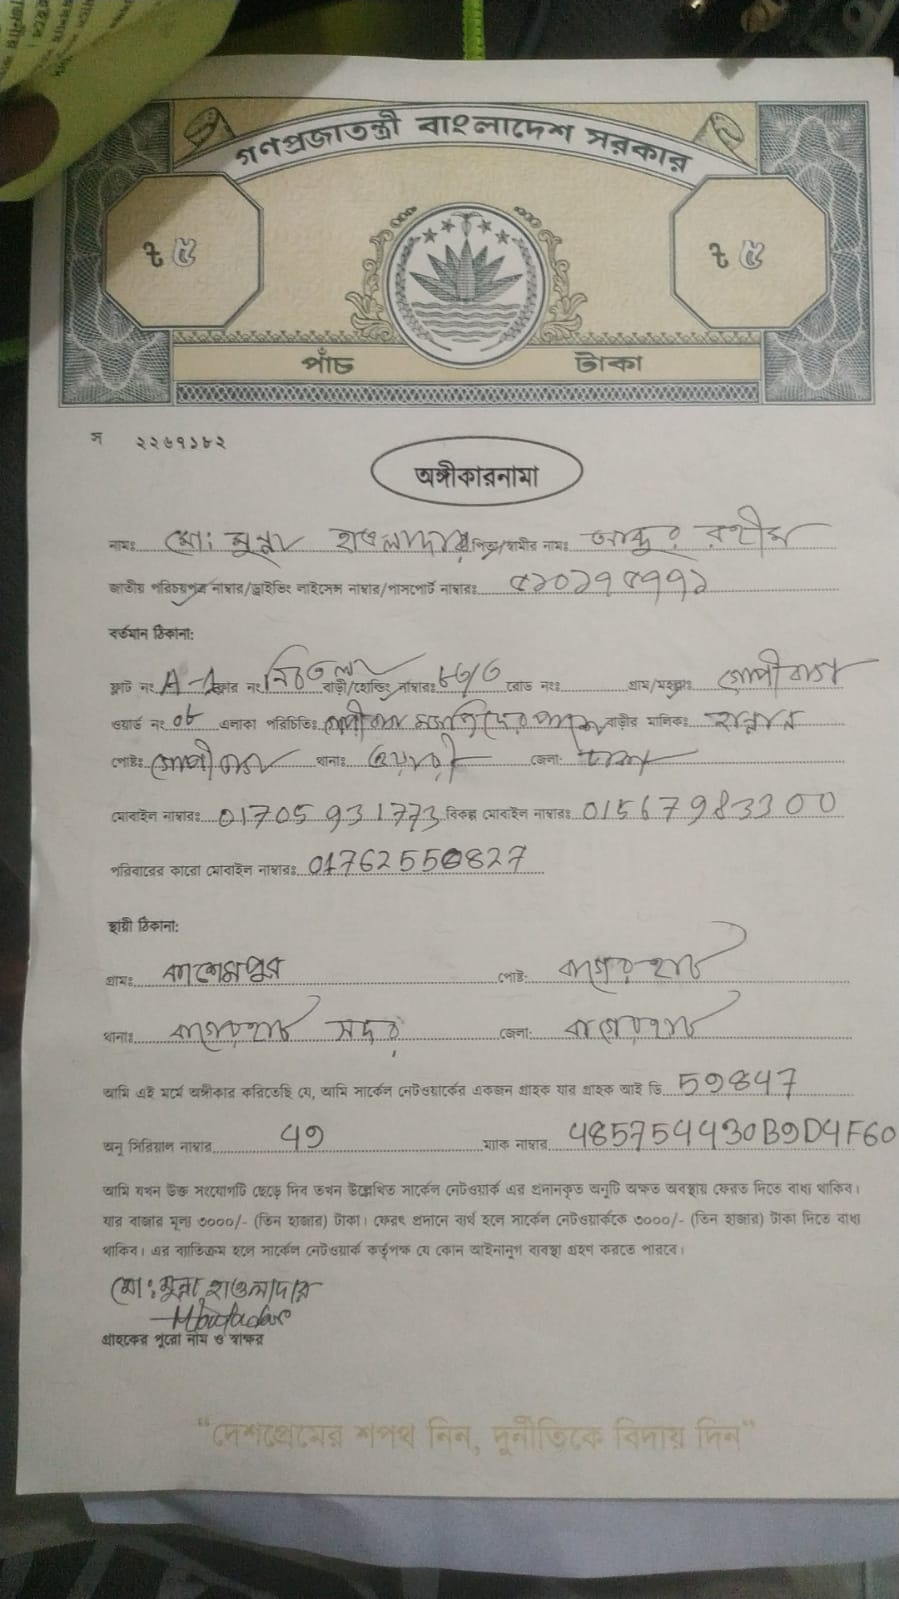 গণপ্রজাতন্ত্রী বাংলাদেশ সরকার
৳ ৫ ৳ ৫
পাঁচ টাকা
স ২২৬৭১৮২
অঙ্গীকারনামা
নামঃ মো: মুন্না হাওলাদার পিতা/স্বামীর নামঃ আব্দুর রহীম
জাতীয় পরিচয়পত্র নাম্বার/ড্রাইভিং লাইসেন্স নাম্বার/পাসপোর্ট নাম্বারঃ
বর্তমান ঠিকানা:
ফ্লাট নং A-1 ফ্লোর নং নিচতলা বাড়ী/হোল্ডিং নাম্বারঃ রোড নংঃ গ্রাম/মহল্লাঃ গোপীবাগ
ওয়ার্ড নং ০৮ এলাকা পরিচিতিঃ গোপীবাগ মসজিদের পাশে বাড়ীর মালিকঃ হান্নান
পোষ্টঃ গোপীবাগ থানাঃ ওয়ারী জেলা: ঢাকা
মোবাইল নাম্বারঃ 01705931773 বিকল্প মোবাইল নাম্বারঃ 01567983300
পরিবারের কারো মোবাইল নাম্বারঃ 01762556827
স্থায়ী ঠিকানা:
গ্রামঃ কাশেমপুর পোষ্ট: বাগেরহাট
থানাঃ বাগেরহাট সদর জেলা: বাগেরহাট
আমি এই মর্মে অঙ্গীকার করিতেছি যে, আমি সার্কেল নেটওয়ার্কের একজন গ্রাহক যার গ্রাহক আই ডি 59847
অনু সিরিয়াল নাম্বার 49 ম্যাক নাম্বার 485754430B9D4F60
আমি যখন উক্ত সংযোগটি ছেড়ে দিব তখন উল্লেখিত সার্কেল নেটওয়ার্ক এর প্রদানকৃত অনুটি অক্ষত অবস্থায় ফেরত দিতে বাধ্য থাকিব।
যার বাজার মূল্য ৩০০০/- (তিন হাজার) টাকা। ফেরৎ প্রদানে ব্যর্থ হলে সার্কেল নেটওয়ার্ককে ৩০০০/- (তিন হাজার) টাকা দিতে বাধ্য
থাকিব। এর ব্যতিক্রম হলে সার্কেল নেটওয়ার্ক কর্তৃপক্ষ যে কোন আইনানুগ ব্যবস্থা গ্রহণ করতে পারবে।
মো: মুন্না হাওলাদার
গ্রাহকের পুরো নাম ও স্বাক্ষর
“দেশপ্রেমের শপথ নিন, দুর্নীতিকে বিদায় দিন”